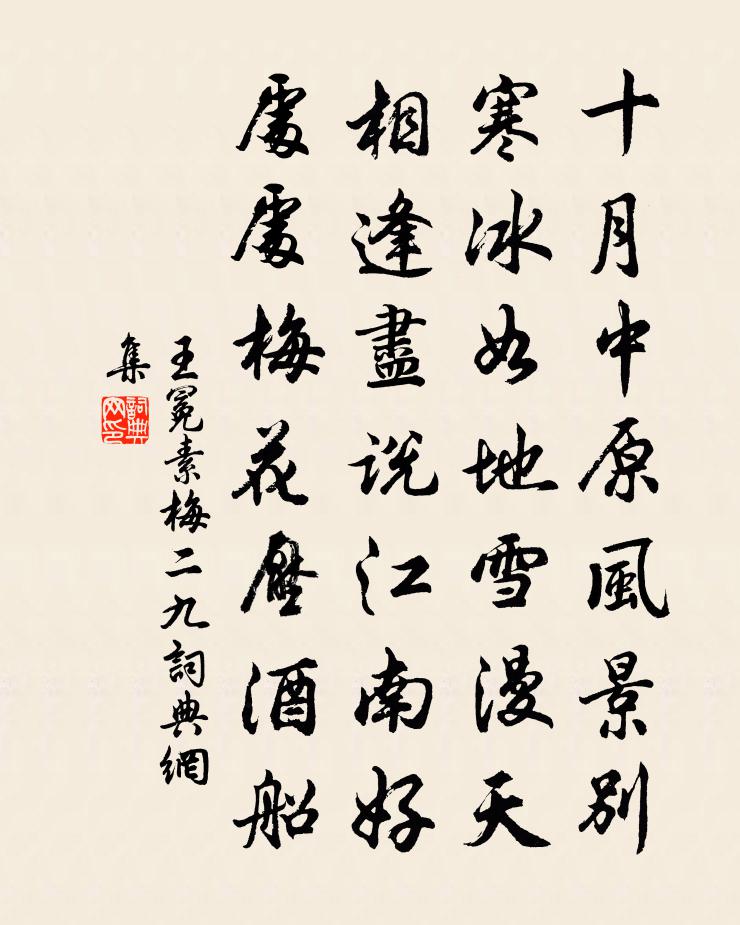 十月中原風景別
寒冰如地雪漫天
相逢盡說江南好
處處梅花壓酒船
王冕素梅二九詞典網
集
詞典
网印